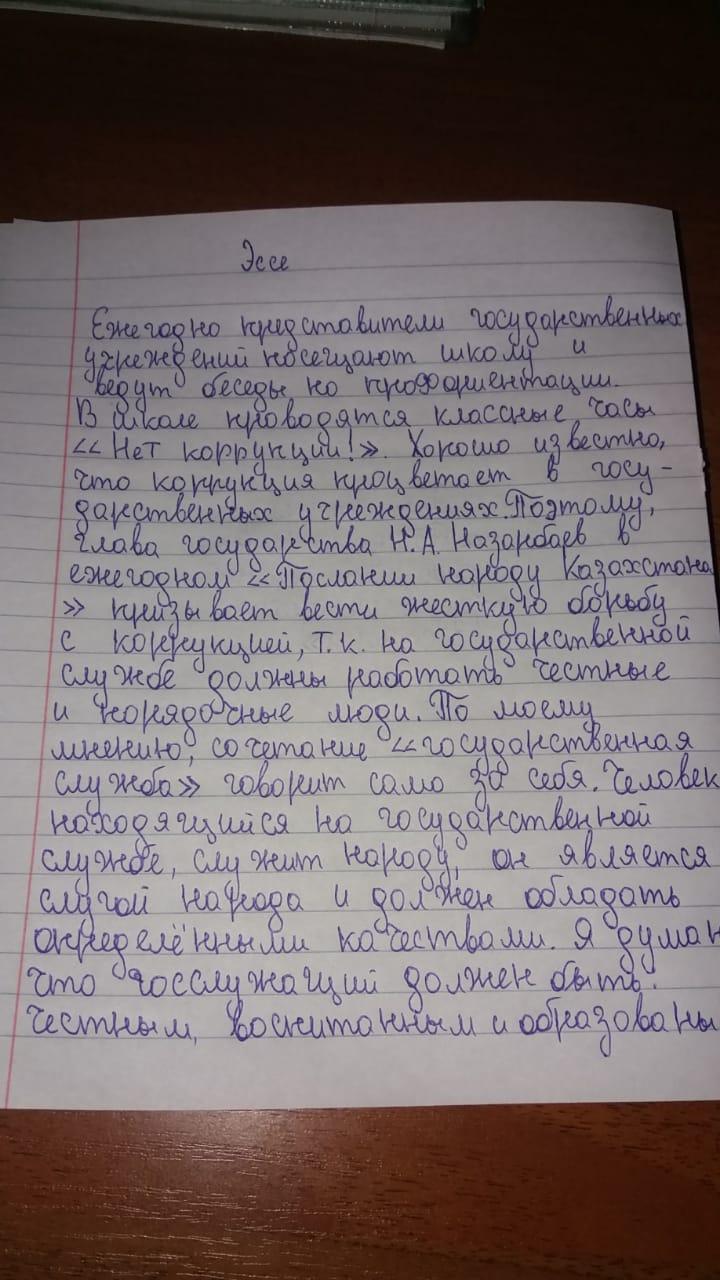 Эссе
Ежегодно представители государственных
учреждений посещают школу и
ведут беседы по профориентации.
В школе проводятся классные часы
«Нет коррупции!». Хорошо известно,
что коррупция процветает в госу-
дарственных учреждениях. Поэтому,
глава государства Н.А. Назарбаев в
ежегодном «Послании народу Казахстана
» призывает вести жесткую борьбу
с коррупцией, т.к. на государственной
службе должны работать честные
и порядочные люди. По моему
мнению, сочетание «государственная
служба» говорит само за себя. Человек
находящийся на государственной
службе, служит народу, он является
слугой народа и должен обладать
определёнными качествами. Я дума
что госслужащий должен быть:
честным, воспитанным и образованы